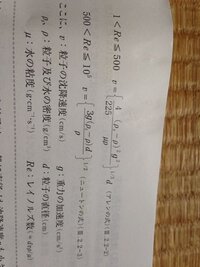 1＜Re≦500 v={4/225 (ρs－ρ)²g²/μρ}^1/3 d (アレンの式)(Ⅲ 2.2-2)
500＜Re≦10⁵ v={3g(ρs－ρ)d/ρ}^1/2 (ニュートンの式)(Ⅲ 2.2-3)
ここに、v：粒子の沈降速度(cm/s) g：重力の加速度(cm/s²)
ρs, ρ：粒子及び水の密度(g/cm³) d：粒子の直径(cm)
μ：水の粘度(g·cm⁻¹s⁻¹) Re：レイノルズ数(=dvρ/μ)